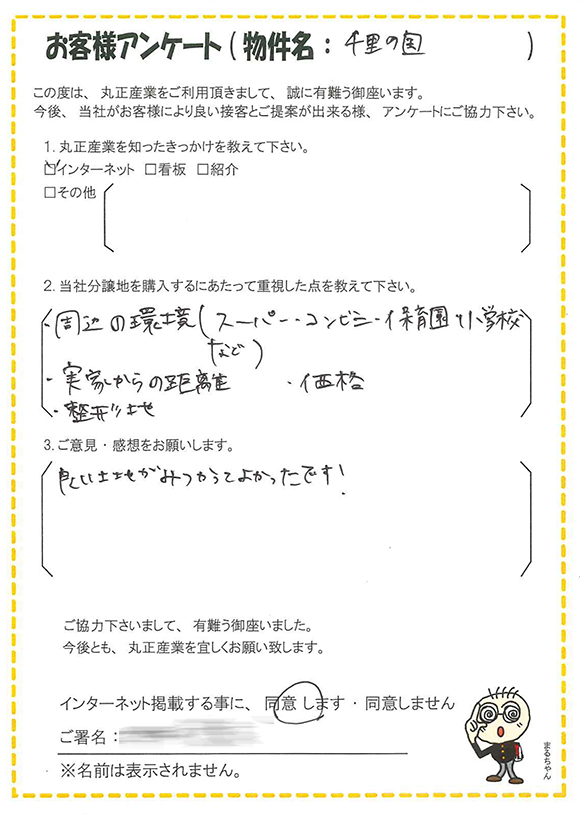 お客様アンケート(物件名:千里の国)
この度は、丸正産業をご利用頂きまして、誠に有難う御座います。
今後、当社がお客様により良い接客とご提案が出来る様、アンケートにご協力下さい。
1.丸正産業を知ったきっかけを教えて下さい。
☑インターネット □看板 □紹介
□その他
2.当社分譲地を購入するにあたって重視した点を教えて下さい。
・周辺の環境(スーパー・コンビニ・保育園・小学校
など)
・実家からの距離 ・価格
・整形地
3.ご意見・感想をお願いします。
良い土地がみつかってよかったです!
ご協力下さいまして、有難う御座いました。
今後とも、丸正産業を宜しくお願い致します。
インターネット掲載する事に、同意します・同意しません
ご署名:
※名前は表示されません。
まるちゃん